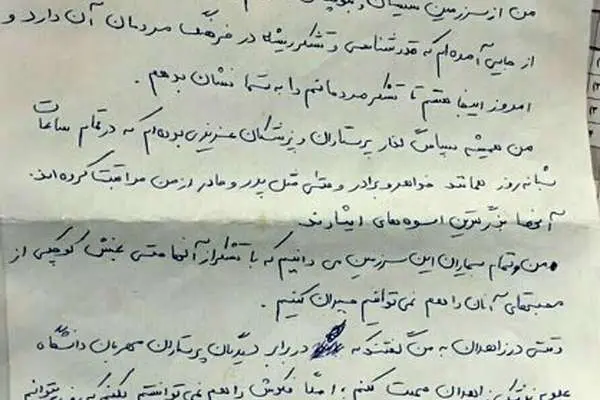 من از سرزمین سیستان و بلوچستان
از جایی آمده‌ام که قدرشناسی و تشکر ریشه در فرهنگ مردمان آن دارد و
امروز اینجا هستم تا تشکر مردمانم را به شما نشان بدهم.
من همیشه سپاسگزار پرستاران و پزشکان عزیزی بوده‌ام که در تمام ساعات
شبانه روز همانند خواهر و برادر و حتی مثل پدر و مادر از من مراقبت کرده‌اند.
آنها بزرگترین اسوه‌های ایثارند
من و تمام بیماران این سرزمین می دانیم که با تشکر از آنها حتی بخش کوچکی از
محبتهای آنان را هم نمی‌توانیم جبران کنیم.
وقتی در زاهدان به من گفتند که در برابر دیدگان پرستاران مهربان دانشگاه
علوم پزشکی زاهدان صحبت کنم، اصلا فکرش را هم نمی‌توانستم بکنم که روزی بتوانم